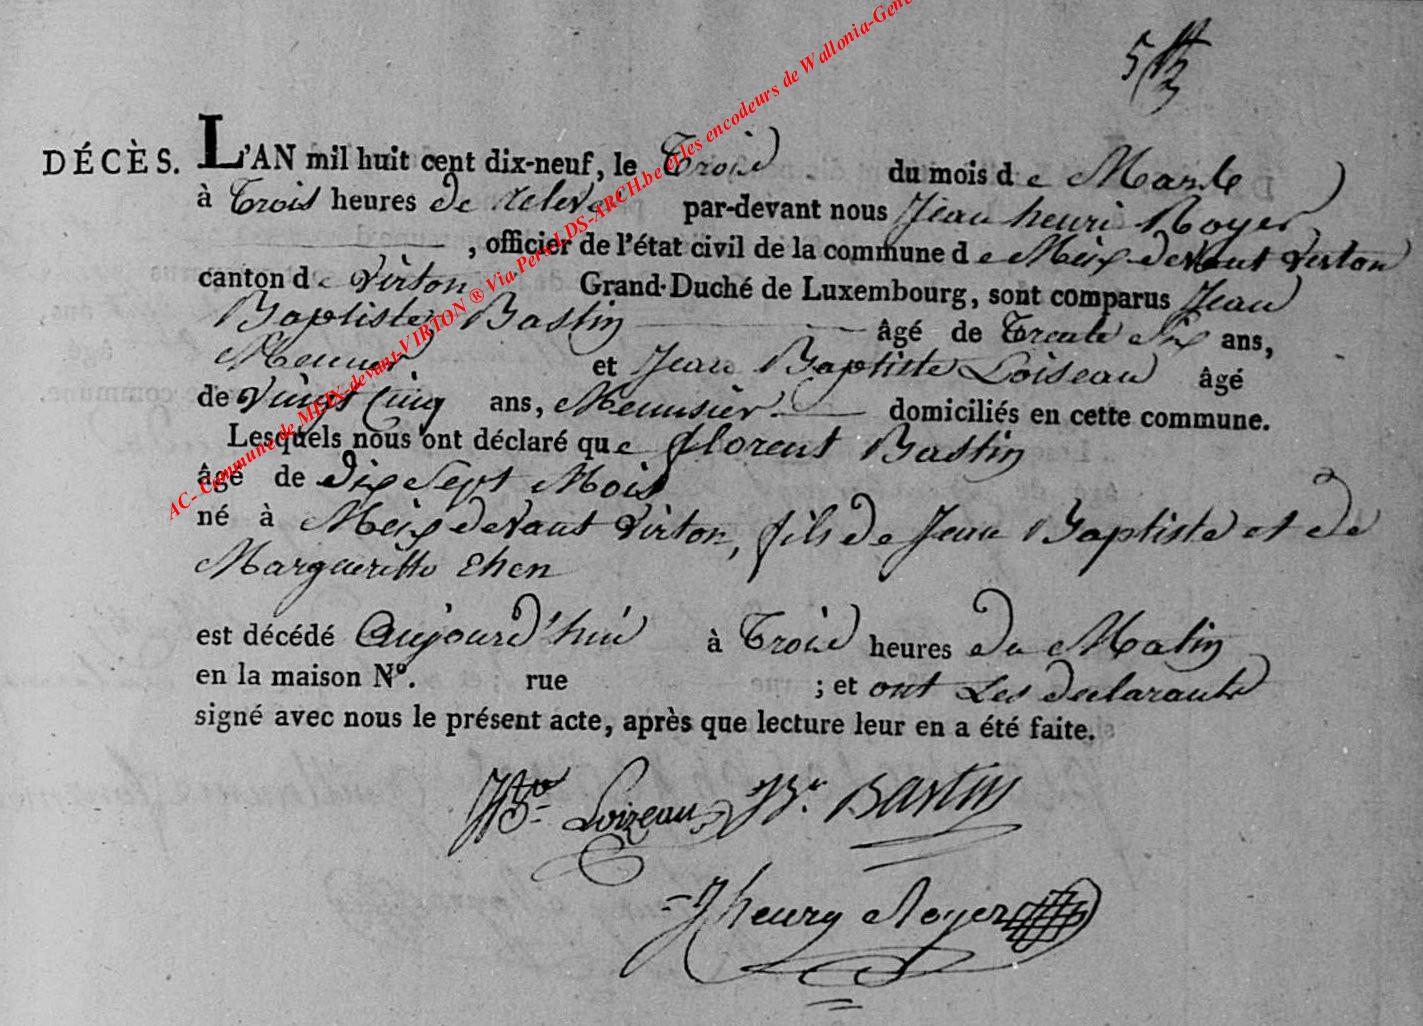 DÉCÈS. L'AN mil huit cent dix-neuf, le Trois du mois de
à Trois heures de relevé par-devant nous Jean henri Royer
, officier de l'état civil de la commune de Meix devant Virton
canton de Virton Grand-Duché de Luxembourg, sont comparus Jean
Baptiste Bastin âgé de Trente Six ans,
et Jean Baptiste Loiseau âgé
de Vingt Cinq ans, Menusier domiciliés en cette commune.
Lesquels nous ont déclaré que florent Bastin
âgé de dix Sept Mois
né à Meix devant Virton, fils de Jean Baptiste et de
Margueritte Ehen
est décédé aujourd'hui à Trois heures du Matin
en la maison N°. rue ; et ont Les declarants
signé avec nous le présent acte, après que lecture leur en a été faite.
JBte Loizeau JBr. Bastin
Jhenry Royer
AC- Commune de MEIX-devant-VIRTON ® Via Pers LDS-ARCH.be et les encodeurs de Wallonia-Gene